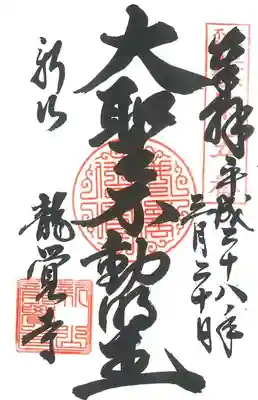 奉拝
平成二十八年
三月二十日
大聖不動明王
新治
龍覚寺